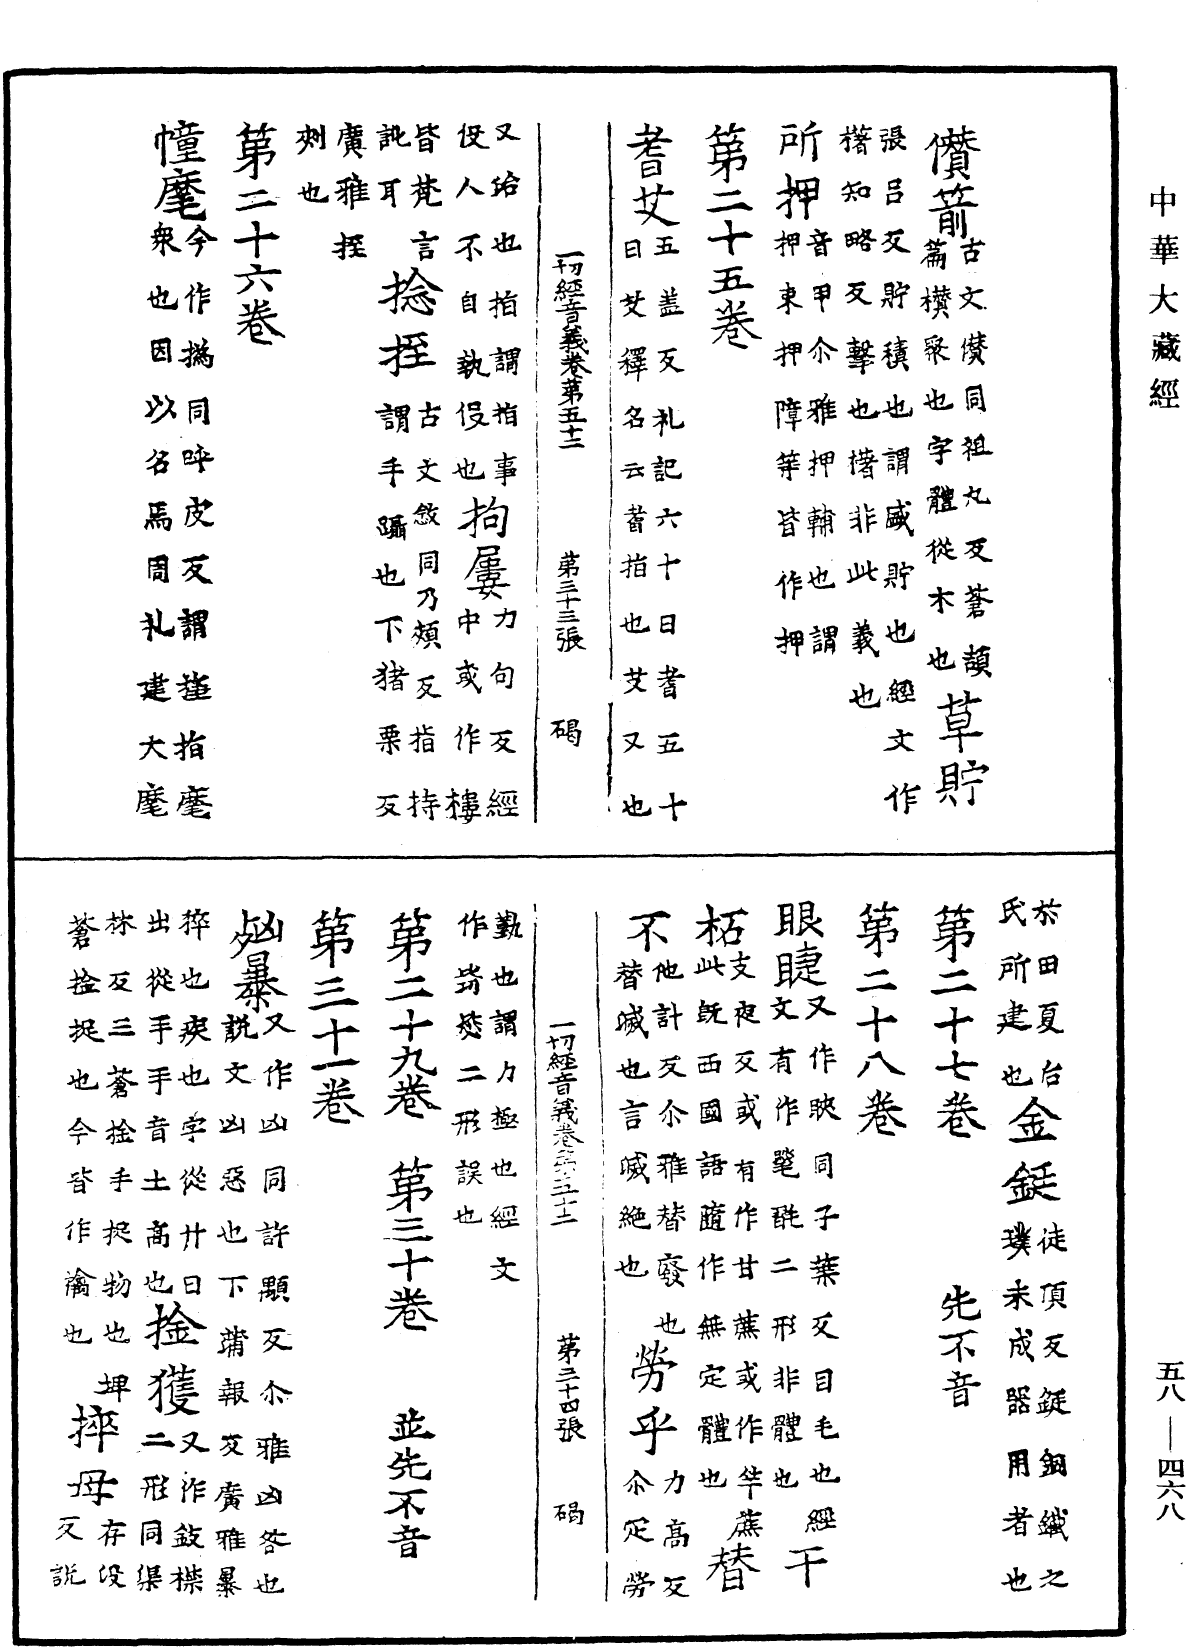 中華大藏經
儹箭古文儹同祖丸反蒼頡
篇欑聚也字體從木也草貯
張呂反貯積也謂盛貯也經文作
櫡知略反擊也櫡非此義也
所押音甲尒雅押輔也謂
押束押障等皆作押
第二十五卷
耆艾五盖反礼記六十曰耆五十
曰艾釋名云耆指也艾又也
一切經音義卷第五十二 第三十三張 碣
又紿也拍謂拍事
役人不自執役也拘屢力句反經
中或作㩻
皆梵言捻挃古文敜同乃頰反指持
訛耳謂手躡也下猪栗反
廣雅挃
刺也
第二十六卷
幢麾今作撝同呼皮反謂旌指麾
衆也因以名焉周礼建大麾
於田夏后
氏所建也金鋌徒頂反鋌銅鐵之
璞未成器用者也
第二十七卷 先不音
第二十八卷
眼睫又作䀹同子葉反目毛也經
文有作毣𣮉二形非體也干
柘支夜反或有作甘蔗或作竿蔗
此旣西國語隨作無定體也替
不他計反尒雅替廢也
替滅也言滅絶也勞乎力高反
尒疋勞
勤也謂力極也經文
作䇯慫二形誤也
第二十九卷 第三十卷 並先不音
第三十一卷
𣧑暴又作凶同許顒反尒雅凶咎也
說文凶惡也下蒲報反廣雅暴
猝也疾也字從廾日
出從手手音土高也捦獲又作𢽬㯲
二形同渠
林反三蒼捦手捉物也埤
蒼捦捉也今皆作禽也捽母存沒
反說
五八—四六八